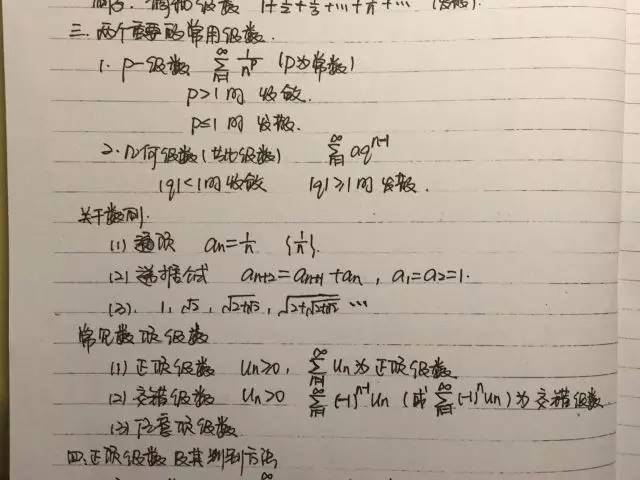 调和级数 1+1/2+1/3+…+1/n+… (发散).
三. 两个重要的常用级数.
1. p-级数 ∑_{n=1}^∞ 1/n^p (p为常数)
p>1时 收敛.
p≤1时 发散.
2. 几何级数(等比级数) ∑_{n=1}^∞ aq^{n-1}
|q|<1时收敛 |q|≥1时发散.
关于数列.
(1) 通项 an=1/n {1/n}.
(2) 递推公式 a_{n+2}=a_{n+1}+a_n, a_1=a_2=1.
(3). 1, √2, √(2+√2), √(2+√(2+√2)) …
常见数项级数
(1) 正项级数 Un≥0, ∑_{n=1}^∞ Un为正项级数
(2) 交错级数 Un>0 ∑_{n=1}^∞ (-1)^{n-1}Un (或∑_{n=1}^∞(-1)^n Un)为交错级数
(3) 任意项级数
四.正项级数及其判别方法